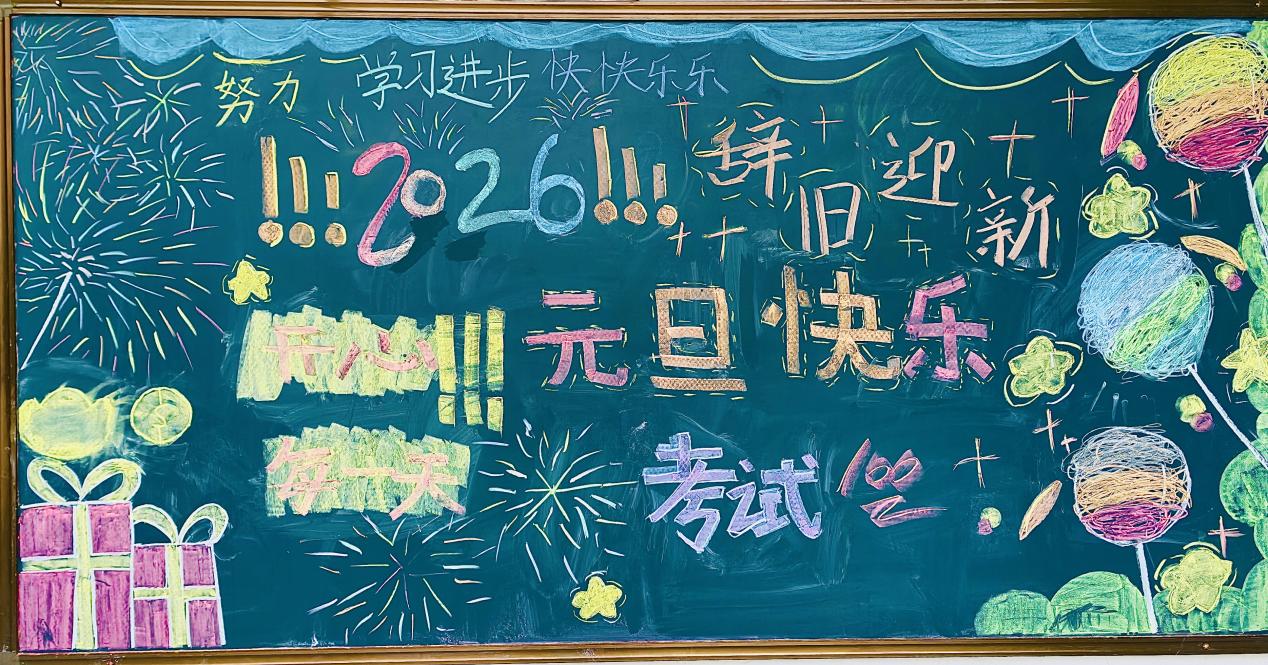 努力 学习进步 快快乐乐
!!!2026!!!
辞旧迎新
开心!!!
元旦快乐
每一天
考试 100